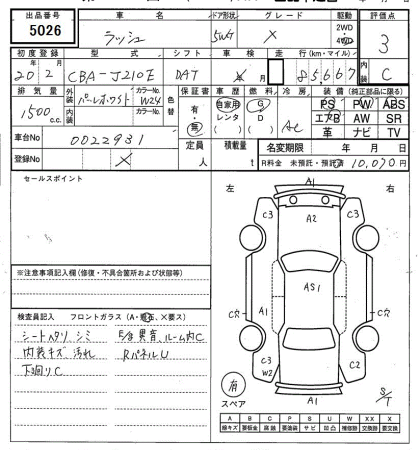 出品番号 車名 ドア形状 グレード 駆動 評価点
5026 ラッシュ 5W X 2WD 4WD 3
初度登録 型式 シフト 車検 走行(km・マイル) 内装
20年2月 CBA-J210E DAT 85,667 C
排気量 外装 カラーNo. 色替 保証書 車歴 燃料 冷房 装備(純正部品に限る)
1500c.c. パールホワイト W24 有・無 自家用 レンタ ( ) G D ( ) AC PS PW ABS
内装 カラーNo. エアB AW SR
革 ナビ TV
車台No 0022931 定員 人 積載量 t 名変期限 年 月 日
登録No X R料金 未預託・預託済 10,070円
セールスポイント
左 右
A1
C3 A2 C3
AS1
C穴 A1 C穴
C3 W2 C2
A1
有 スペア
S/T
※注意事項記入欄(修復・不具合箇所および状態等)
検査員記入 フロントガラス(A・飛石、X要ス)
シートヘタリ シミ E/G異音 ルーム内C
内装キズ 汚れ RパネルU
下回りC
A B C P S U W XX X
線キズ 要板金 腐蝕 要塗装 サビ 凹凸 補修跡 交換跡 要交換